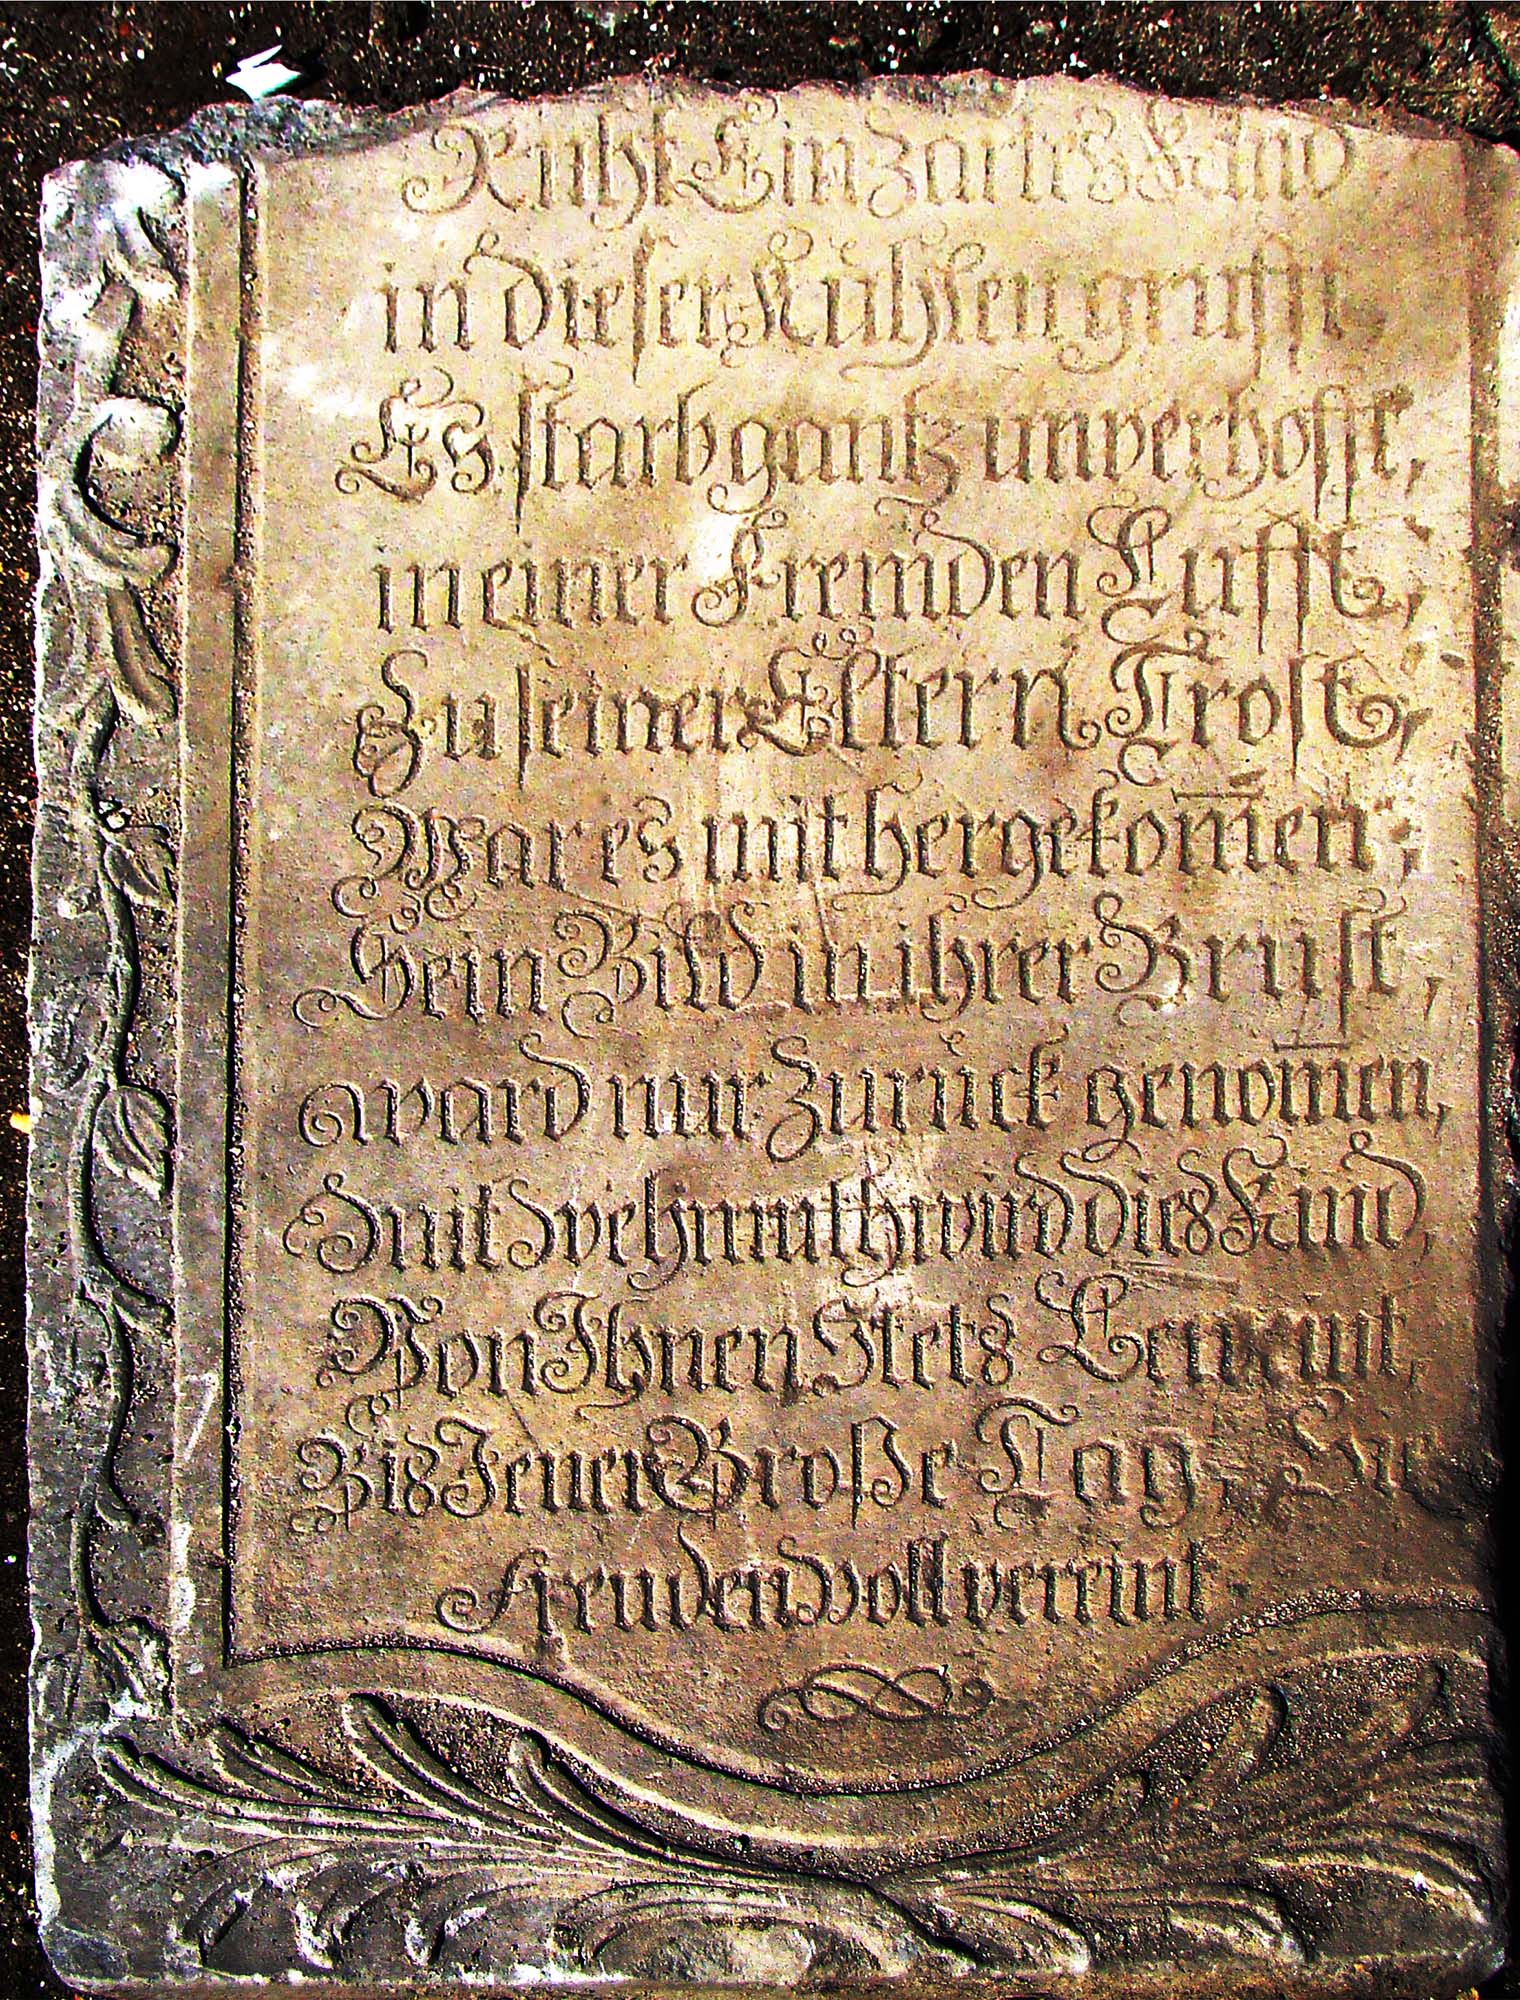 Ruht Ein zartes Kind
in dieser Kühlen grufft
Es starb gantz unverhofft,
in einer Fremden Lufft,
Zu seiner Eltern Trost,
War es mit hergekom̄en;
Sein Bild in ihrer Brust,
ward nur zurück genom̄en,
mit wehmuth wird dies Kind,
Von Ihnen Stets Beweint,
Bis Jener Große Tag, Sie
freuden voll vereint.